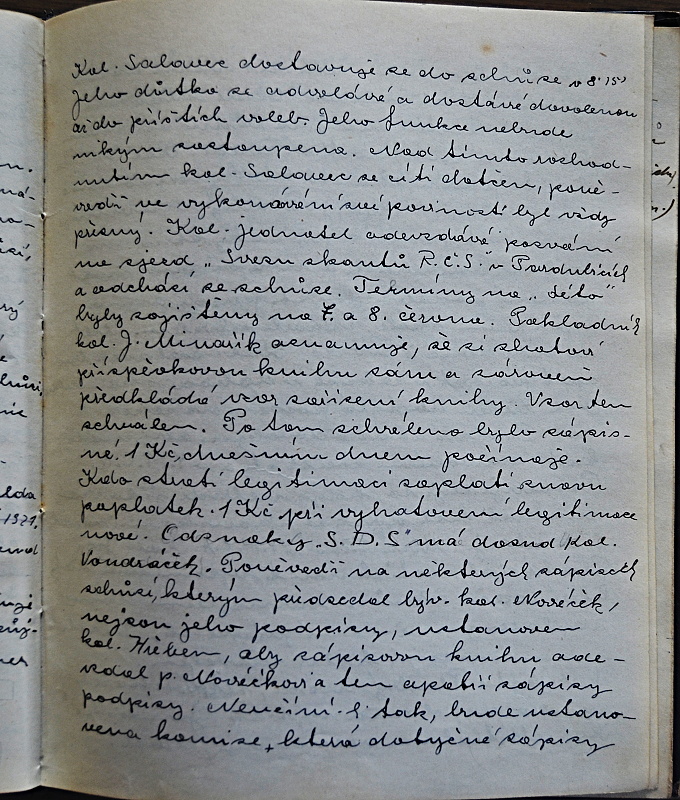 n.
ná-
lda
1921,
Kol. Salavec dostavuje se do schůze v 8·15'
Jeho důtka se odvolává a dostává dovolenou
až do příštích voleb. Jeho funkce nebude
nikým zastoupena. Nad tímto rozhod-
nutím kol. Salavec se cítí dotčen, poně-
vadž ve vykonávání své povinnosti byl vždy
přesný. Kol. jednatel odevzdává pozvání
na sjezd „Svazu skautů R.Č.S." v Pardubicích
a odchází ze schůze. Termíny na „Léto"
byly zajištěny na 7. a 8. června. Pokladník
kol. J. Minařík oznamuje, že si zhotoví
příspěvkovou knihu sám a zároveň
předkládá vzor zařízení knihy. Vzor ten
schválen. Po tom schváleno bylo zápis-
né. 1 Kč, dnešním dnem počínaje.
Kdo ztratí legitimaci zaplatí znovu
poplatek. 1 Kč při vyhotovení legitimace
nové. Odznaky „S. D. S" má dosud kol.
Vondráček. Poněvadž na některých zápisech
schůzí, kterým předsedal býv. kol. Nováček,
nejsou jeho podpisy, ustanoven
kol. Hřeben, aby zápisovou knihu ode-
vzdal p. Nováčkovi a ten opatří zápisy
podpisy. Neučiní-li tak, bude ustano-
vena komise, která dotyčné zápisy